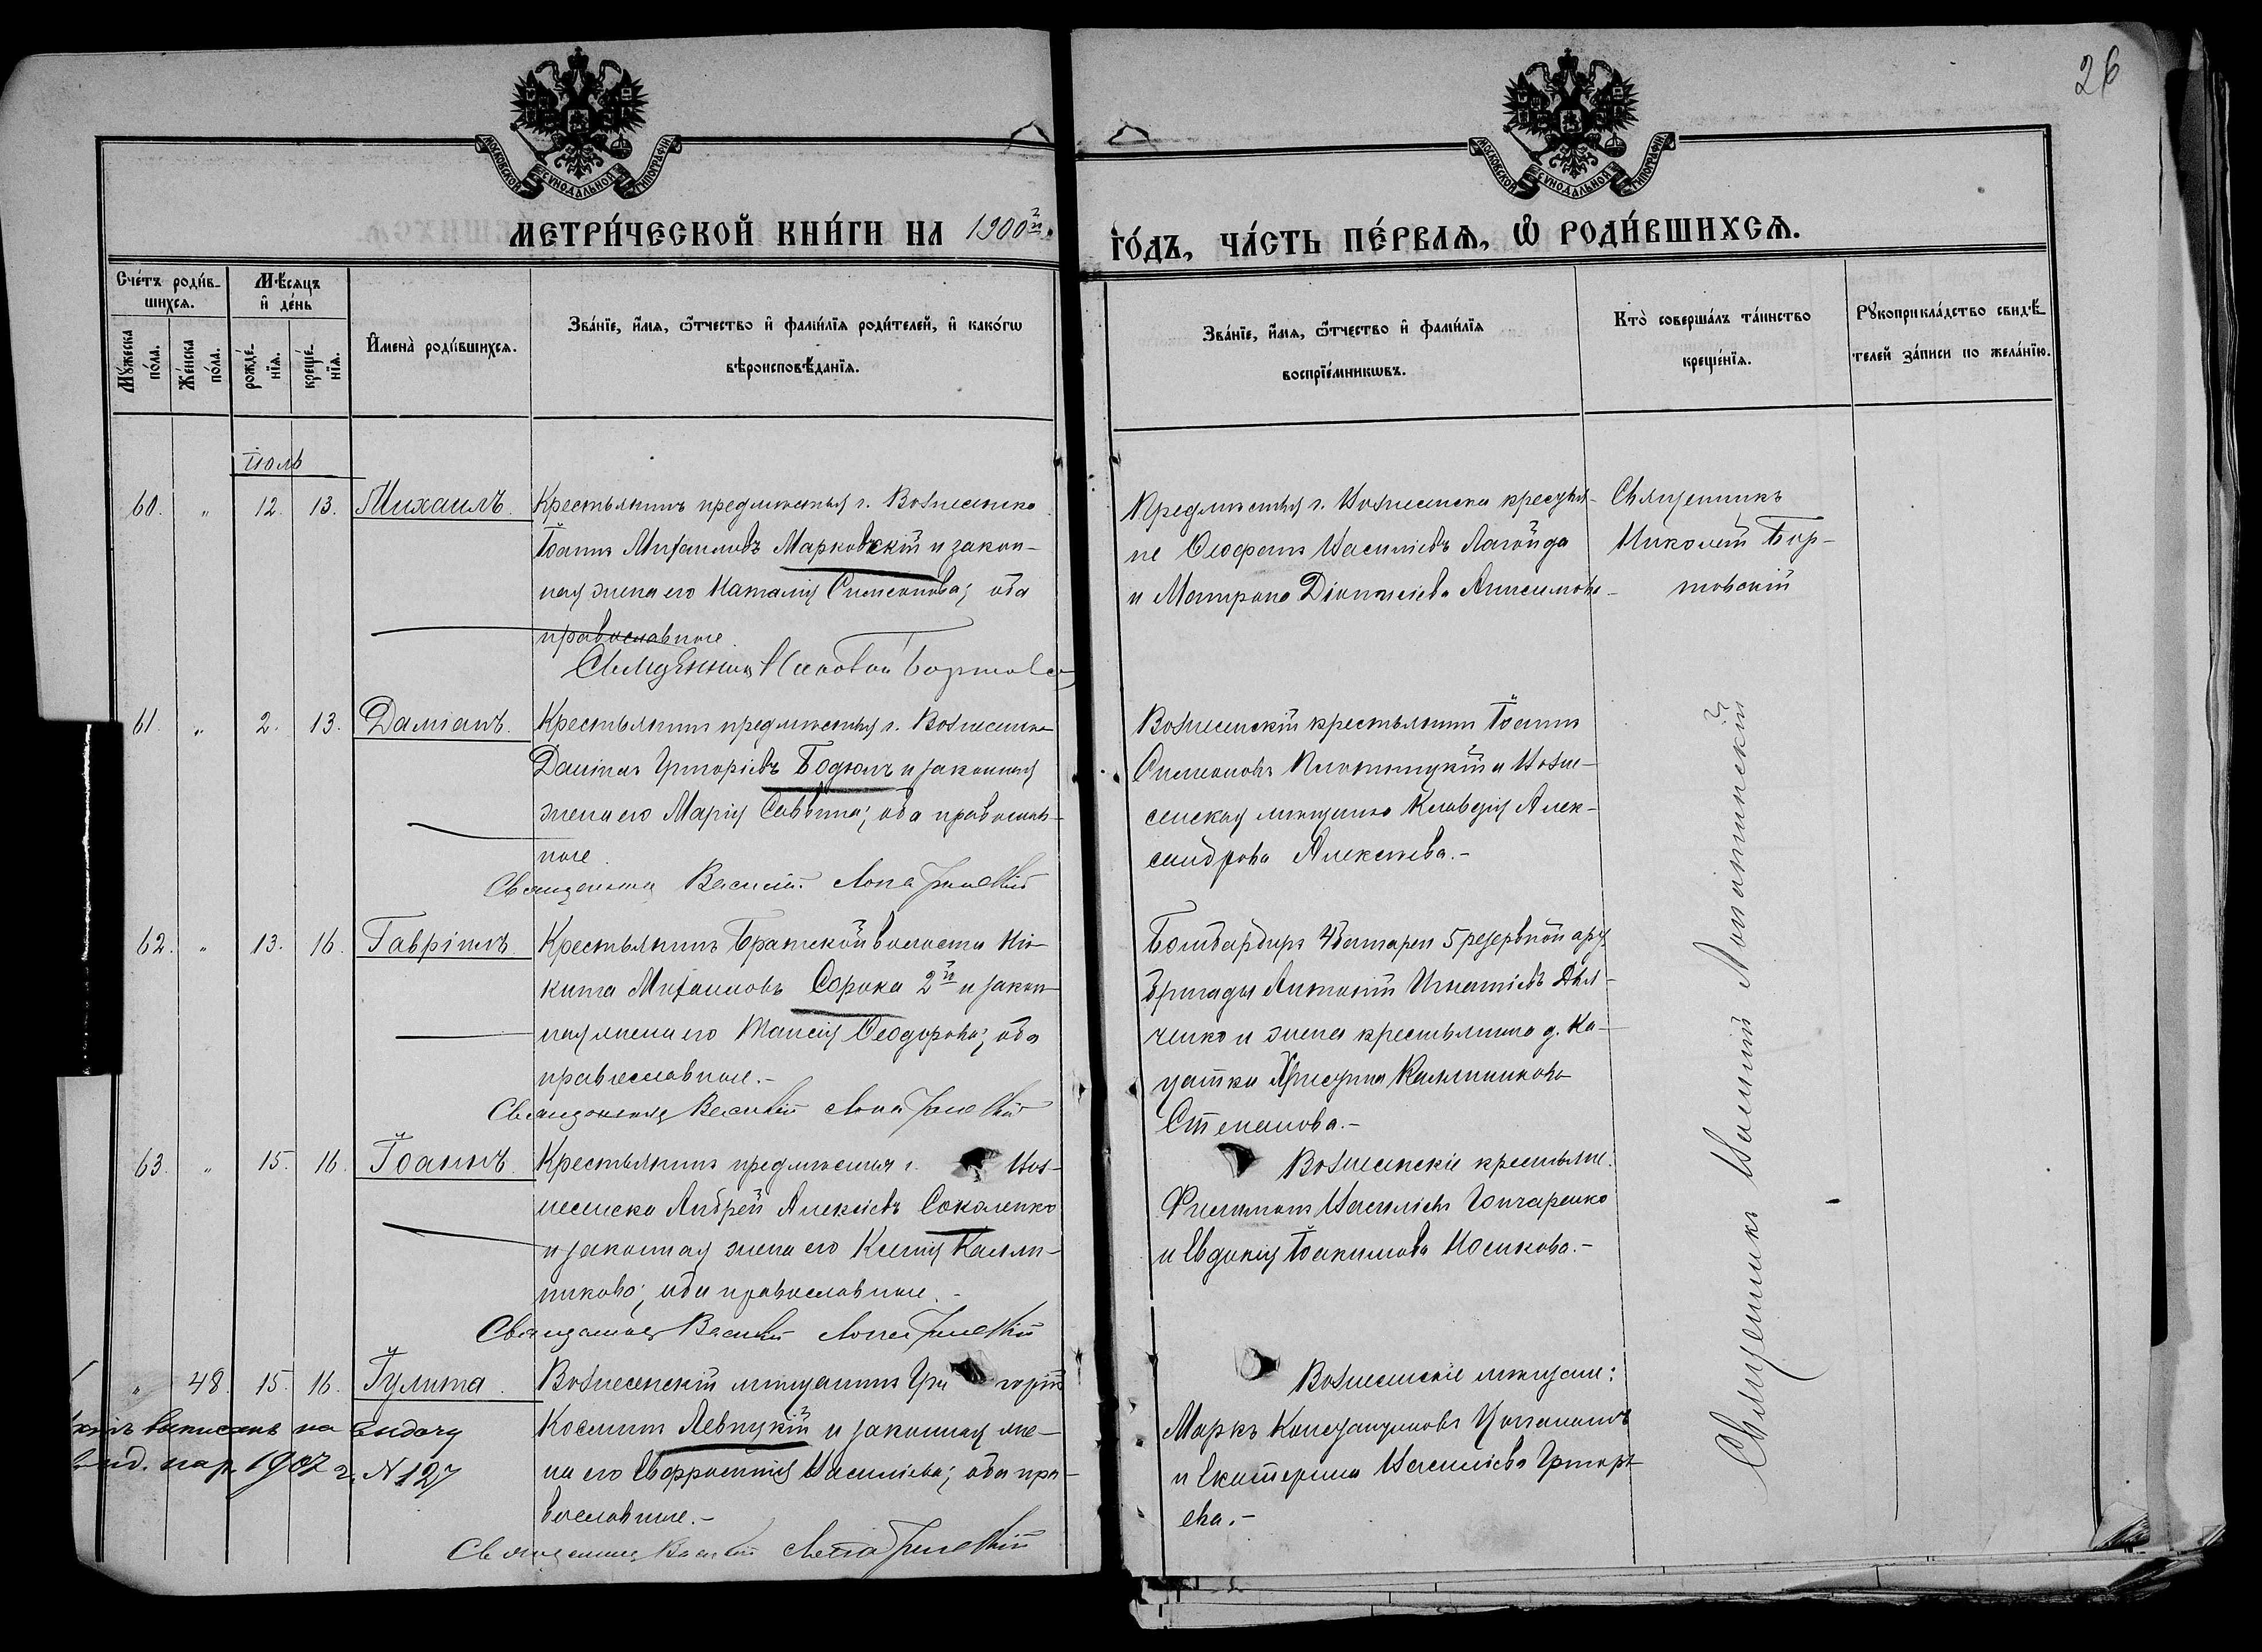 26
МОСКОВСКОЙ СѴНОДАЛЬНОЙ ТИПОГРАФІИ
МОСКОВСКОЙ СѴНОДАЛЬНОЙ ТИПОГРАФІИ
МЕТРИ́ЧЕСКОЙ КНИ́ГИ НА 1900й
ГО́ДЪ, ЧА́СТЬ ПЕ́РВАѦ, Ѽ РОДИ́ВШИХСѦ.
Сче́тъ роди́в-
шихсѧ.
Мꙋ́жеска
по́ла.
Же́нска
по́ла.
Мѣ́сѧцъ
и҆ де́нь
рожде́-
нїѧ.
креще́-
нїѧ.
И҆мена̀ роди́вшихсѧ.
Зва́нїе, и҆́мѧ, ѻ҆́тчество и҆ фами́лїѧ роди́телей, и҆ како́гѡ
вѣроисповѣ́данїѧ.
Зва́нїе, и҆́мѧ, ѻ҆́тчество и҆ фами́лїѧ
воспрїе́мникѡвъ.
Кто̀ соверша́лъ та́инство
креще́нїѧ.
Рꙋкоприкла́дство свидѣ́-
телей за́писи по жела́нїю.
Іюль
60. " 12. 13. Михаилъ.
Крестьянинъ предмѣстья г. Вознесенска
Іоаннъ Михаиловъ Марковскій и закон-
ная жена его Наталія Симеонова; оба
православные.
Священникъ Николай
Предмѣстья г. Вознесенска крестья-
не Ѳеофанъ Василіевъ
и Матрона Діонисіева Анисимова
Священникъ
Николай Бор-
товскій
61. " 2. 13. Даміанъ.
Крестьянинъ предмѣстья г. Вознесенска
Даніилъ Григоріевъ Бодюлъ и законная
жена его Марія Саввина; оба православ-
ные.
Священникъ Василій Лопатинскій
Вознесенскій крестьянинъ Іоаннъ
Симеоновъ и Возне-
сенская мѣщанка Клавдія Алек-
сандрова Алексѣева.-
62. " 13. 16. Гавріилъ.
Крестьянинъ Братской волости Ни-
кита Михаиловъ Сорока 2й и закон-
ная жена его Таисія Ѳеодорова; оба
православные.-
Священникъ Василій Лопатинскій
Бомбардиръ 4 батареи 5 резервной арт.
бригады Антоній Игнатіевъ
ченко и жена крестьянина д. Ка-
цапки Христина Каллиникова
Степанова.-
63. " 15. 16. Іоаннъ.
Крестьянинъ предмѣстья г. Воз-
несенска Андрей Алексіевъ Соколенко
и законная жена его Ксенія Калли-
никова; оба православные.-
Священникъ Василій Лопатинскій
Вознесенскіе крестьяне:
Филиппъ Василіевъ Гончаренко
и Евдокія Іоакимова Носикова.-
" 48. 15. 16. Іулита.
выписанъ на выдачу
1907 г. N 127
Вознесенскій мѣщанинъ Григорій
Косминъ Левицкій и законная же-
на его Евфросинія Василіева; оба пра-
вославные.-
Священникъ Василій Лопатинскій
Вознесенскіе мѣщане:
Маркъ
и Екатерина Василіева Григорь-
ева.-
Священникъ Василій Лопатинскій